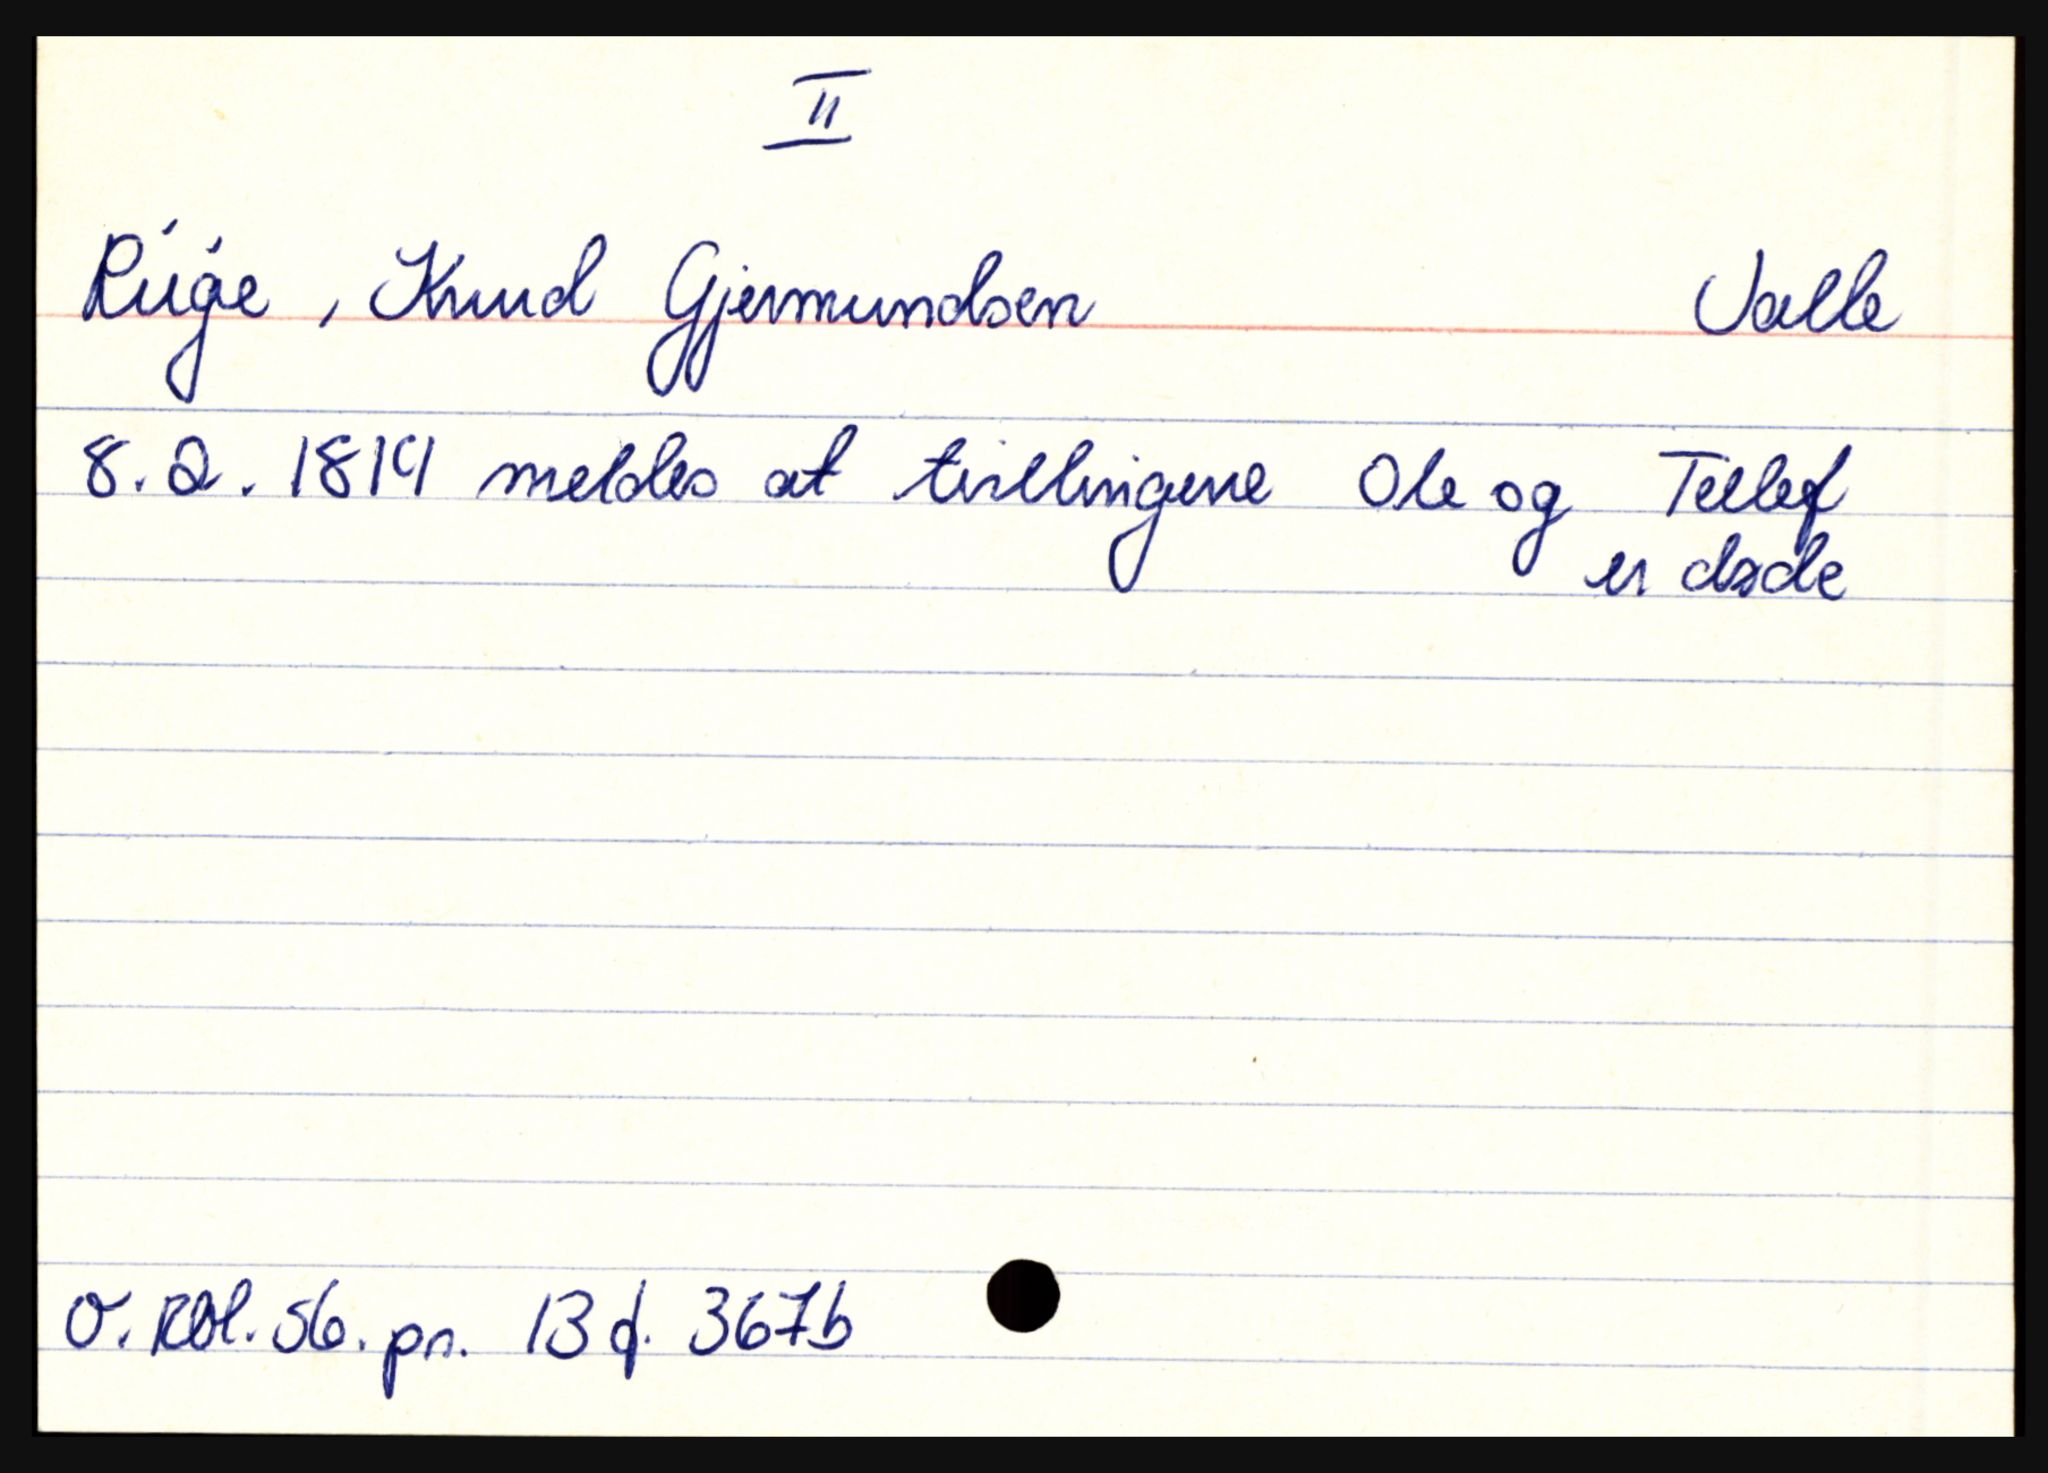 II
Rúge, Knud Gjermundsen Valle
8.2.1819 meldes at tvillingene Ole og Tellef
er døde
O. Rbl. 56. pn. 13 f. 367b